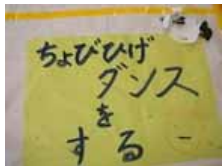 ちょびひげ
ダンス
を
する